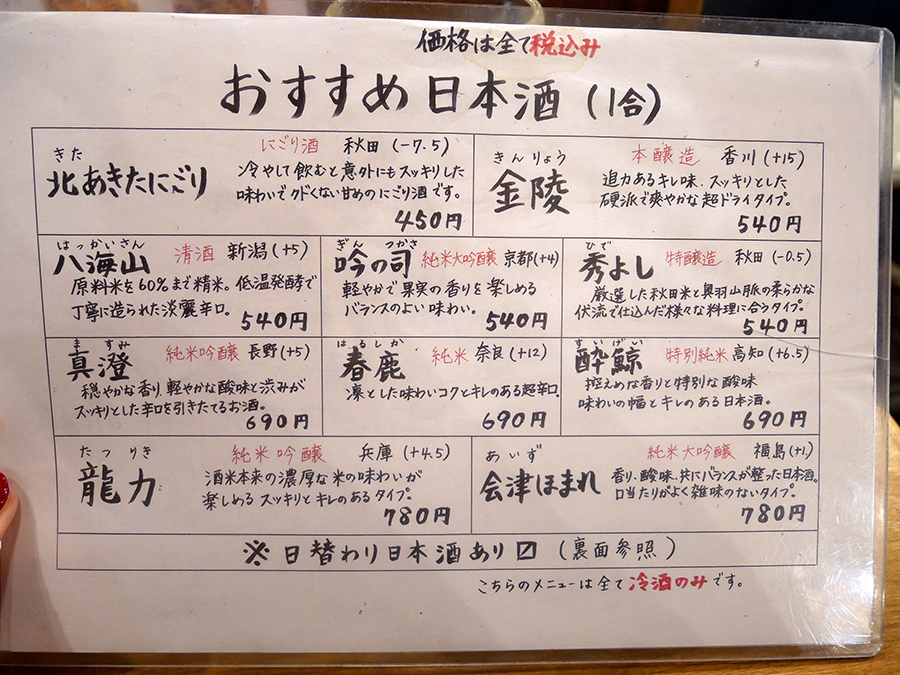 価格は全て税込み
おすすめ日本酒(1合)
きた
北あきたにごり
にごり酒 秋田(-7.5)
冷やして飲むと意外にもスッキリした
味わいでクドくない甘めのにごり酒です。
450円
きんりょう
金陵
本醸造 香川(+15)
迫力あるキレ味、スッキリとした
硬派で爽やかな超ドライタイプ。
540円
はっかいさん
八海山 清酒 新潟(+5)
原料米を60%まで精米。低温発酵で
丁寧に造られた淡麗辛口。
540円
ぎん つかさ
吟の司 純米大吟醸 京都(+4)
軽やかで果実の香りを楽しめる
バランスのよい味わい。
540円
ひで
秀よし 特醸造 秋田(-0.5)
厳選した秋田米と奥羽山脈の柔らかな
伏流で仕込んだ様々な料理に合うタイプ。
540円
ますみ
真澄 純米吟醸 長野(+5)
穏やかな香り、軽やかな酸味と渋みが
スッキリとした辛口を引きたてるお酒。
690円
はるしか
春鹿 純米 奈良(+12)
凛とした味わいコクとキレのある超辛口。
690円
すいげい
酔鯨 特別純米 高知(+6.5)
控えめな香りと特別な酸味
味わいの幅とキレのある日本酒。
690円
たつりき
龍力
純米吟醸 兵庫(+4.5)
酒米本来の濃厚な米の味わいが
楽しめるスッキリとキレのあるタイプ。
780円
あいず
会津ほまれ
純米大吟醸 福島(+1)
香り、酸味、共にバランスが整った日本酒。
口当たりがよく雑味のないタイプ。
780円
※日替わり日本酒あり〼(裏面参照)
こちらのメニューは全て冷酒のみです。